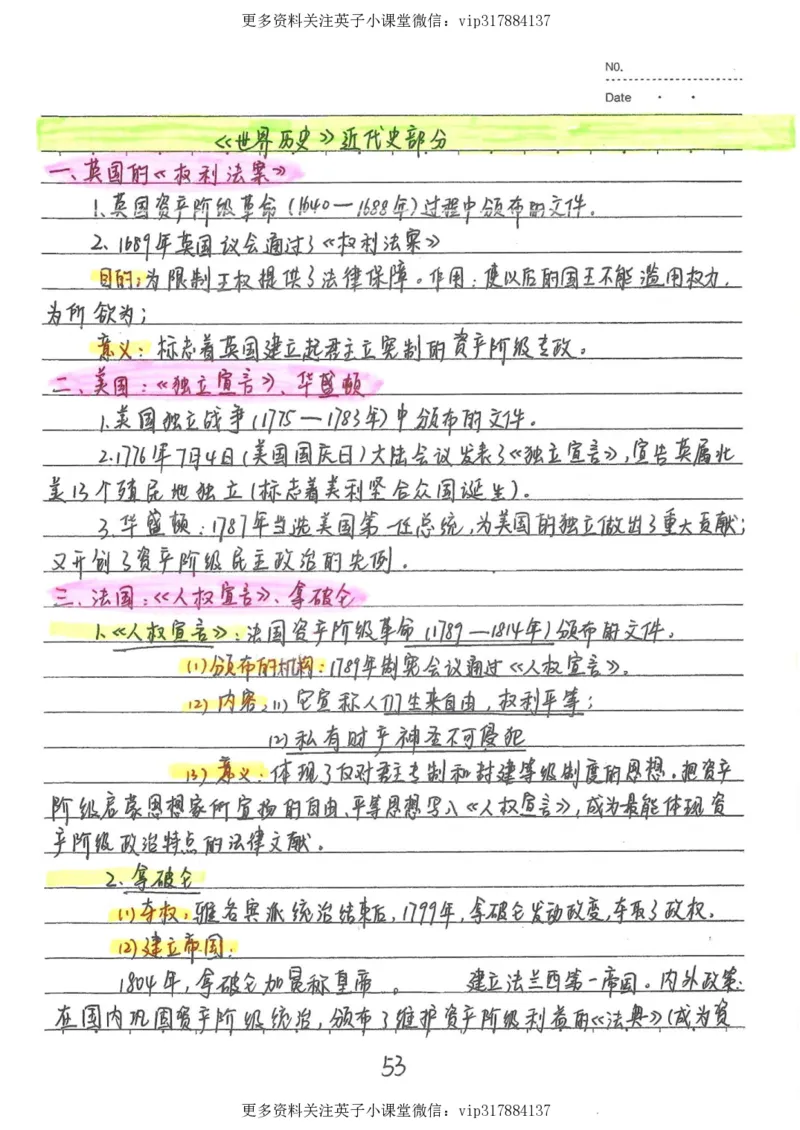 更多资料关注英子小课堂微信：vip317884137
NO.
Date · ·
《世界历史》近代史部分
一、英国的《权利法案》
1.英国资产阶级革命(1640—1688年)过程中颁布的文件.
2. 1689年英国议会通过了《权利法案》
目的：为限制王权提供了法律保障。作用：使以后的国王不能滥用权力,
为所欲为；
意义：标志着英国建立起君主立宪制的资产阶级专政。
二、美国：《独立宣言》、华盛顿
1.美国独立战争(1775—1783年)中颁布的文件。
2.1776年7月4日(美国国庆日)大陆会议发表了《独立宣言》,宣告英属北
美13个殖民地独立(标志着美利坚合众国诞生)。
3.华盛顿：1787年当选美国第一任总统,为美国的独立做出了重大贡献；
又开创了资产阶级民主政治的先例.
三、法国：《人权宣言》、拿破仑
1.《人权宣言》：法国资产阶级革命(1789—1814年)颁布的文件。
(1)颁布的机构：1789年制宪会议通过《人权宣言》。
(2)内容：(1)它宣称人们生来自由，权利平等；
(2)私有财产神圣不可侵犯
(3)意义：体现了反对君主专制和封建等级制度的思想。把资产
阶级启蒙思想家所宣扬的自由、平等思想写入《人权宣言》,成为最能体现资
产阶级政治特点的法律文献。
2.拿破仑
(1)夺权：雅各宾派统治结束后,1799年,拿破仑发动政变,夺取了政权.
(2)建立帝国：
1804年,拿破仑加冕称皇帝 。 建立法兰西第一帝国。内外政策：
在国内巩固资产阶级统治，颁布了维护资产阶级利益的《法典》(成为资
53
更多资料关注英子小课堂微信：vip317884137